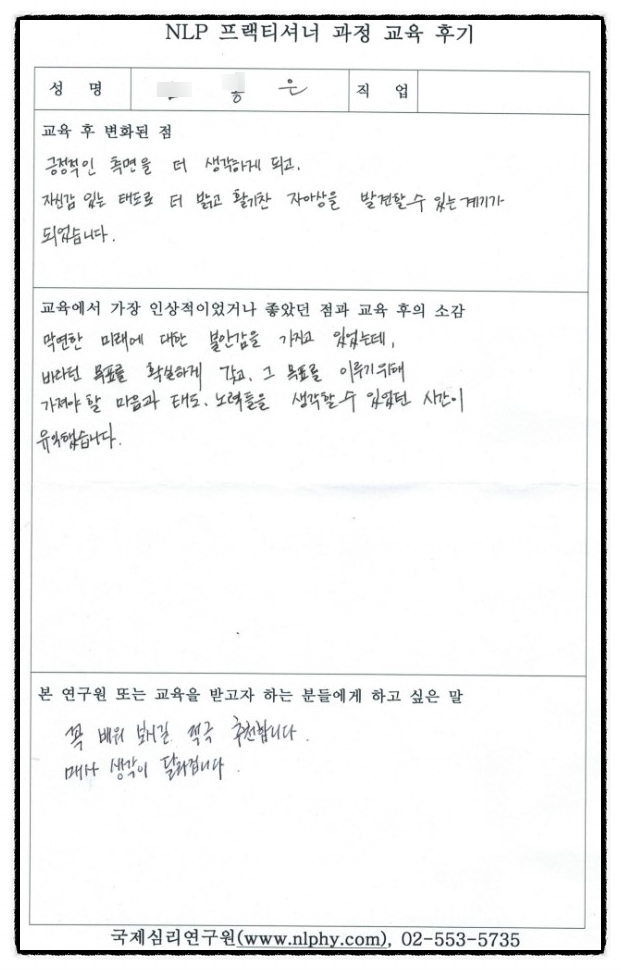 NLP 프랙티셔너 과정 교육 후기
성 명 은 직 업
교육 후 변화된 점
긍정적인 측면을 더 생각하게 되고.
자신감 있는 태도로 더 밝고 활기찬 자아상을 발견할 수 있는 계기가
되었습니다.
교육에서 가장 인상적이었거나 좋았던 점과 교육 후의 소감
막연한 미래에 대한 불안감을 가지고 있었는데,
바라던 목표를 확실하게 갖고, 그 목표를 이루기위해
가져야 할 마음과 태도, 노력들을 생각할 수 있었던 시간이
유익했습니다.
본 연구원 또는 교육을 받고자 하는 분들에게 하고 싶은 말
꼭 배워 보시길 적극 추천합니다.
매사 생각이 달라집니다.
국제심리연구원(www.nlphy.com), 02-553-5735